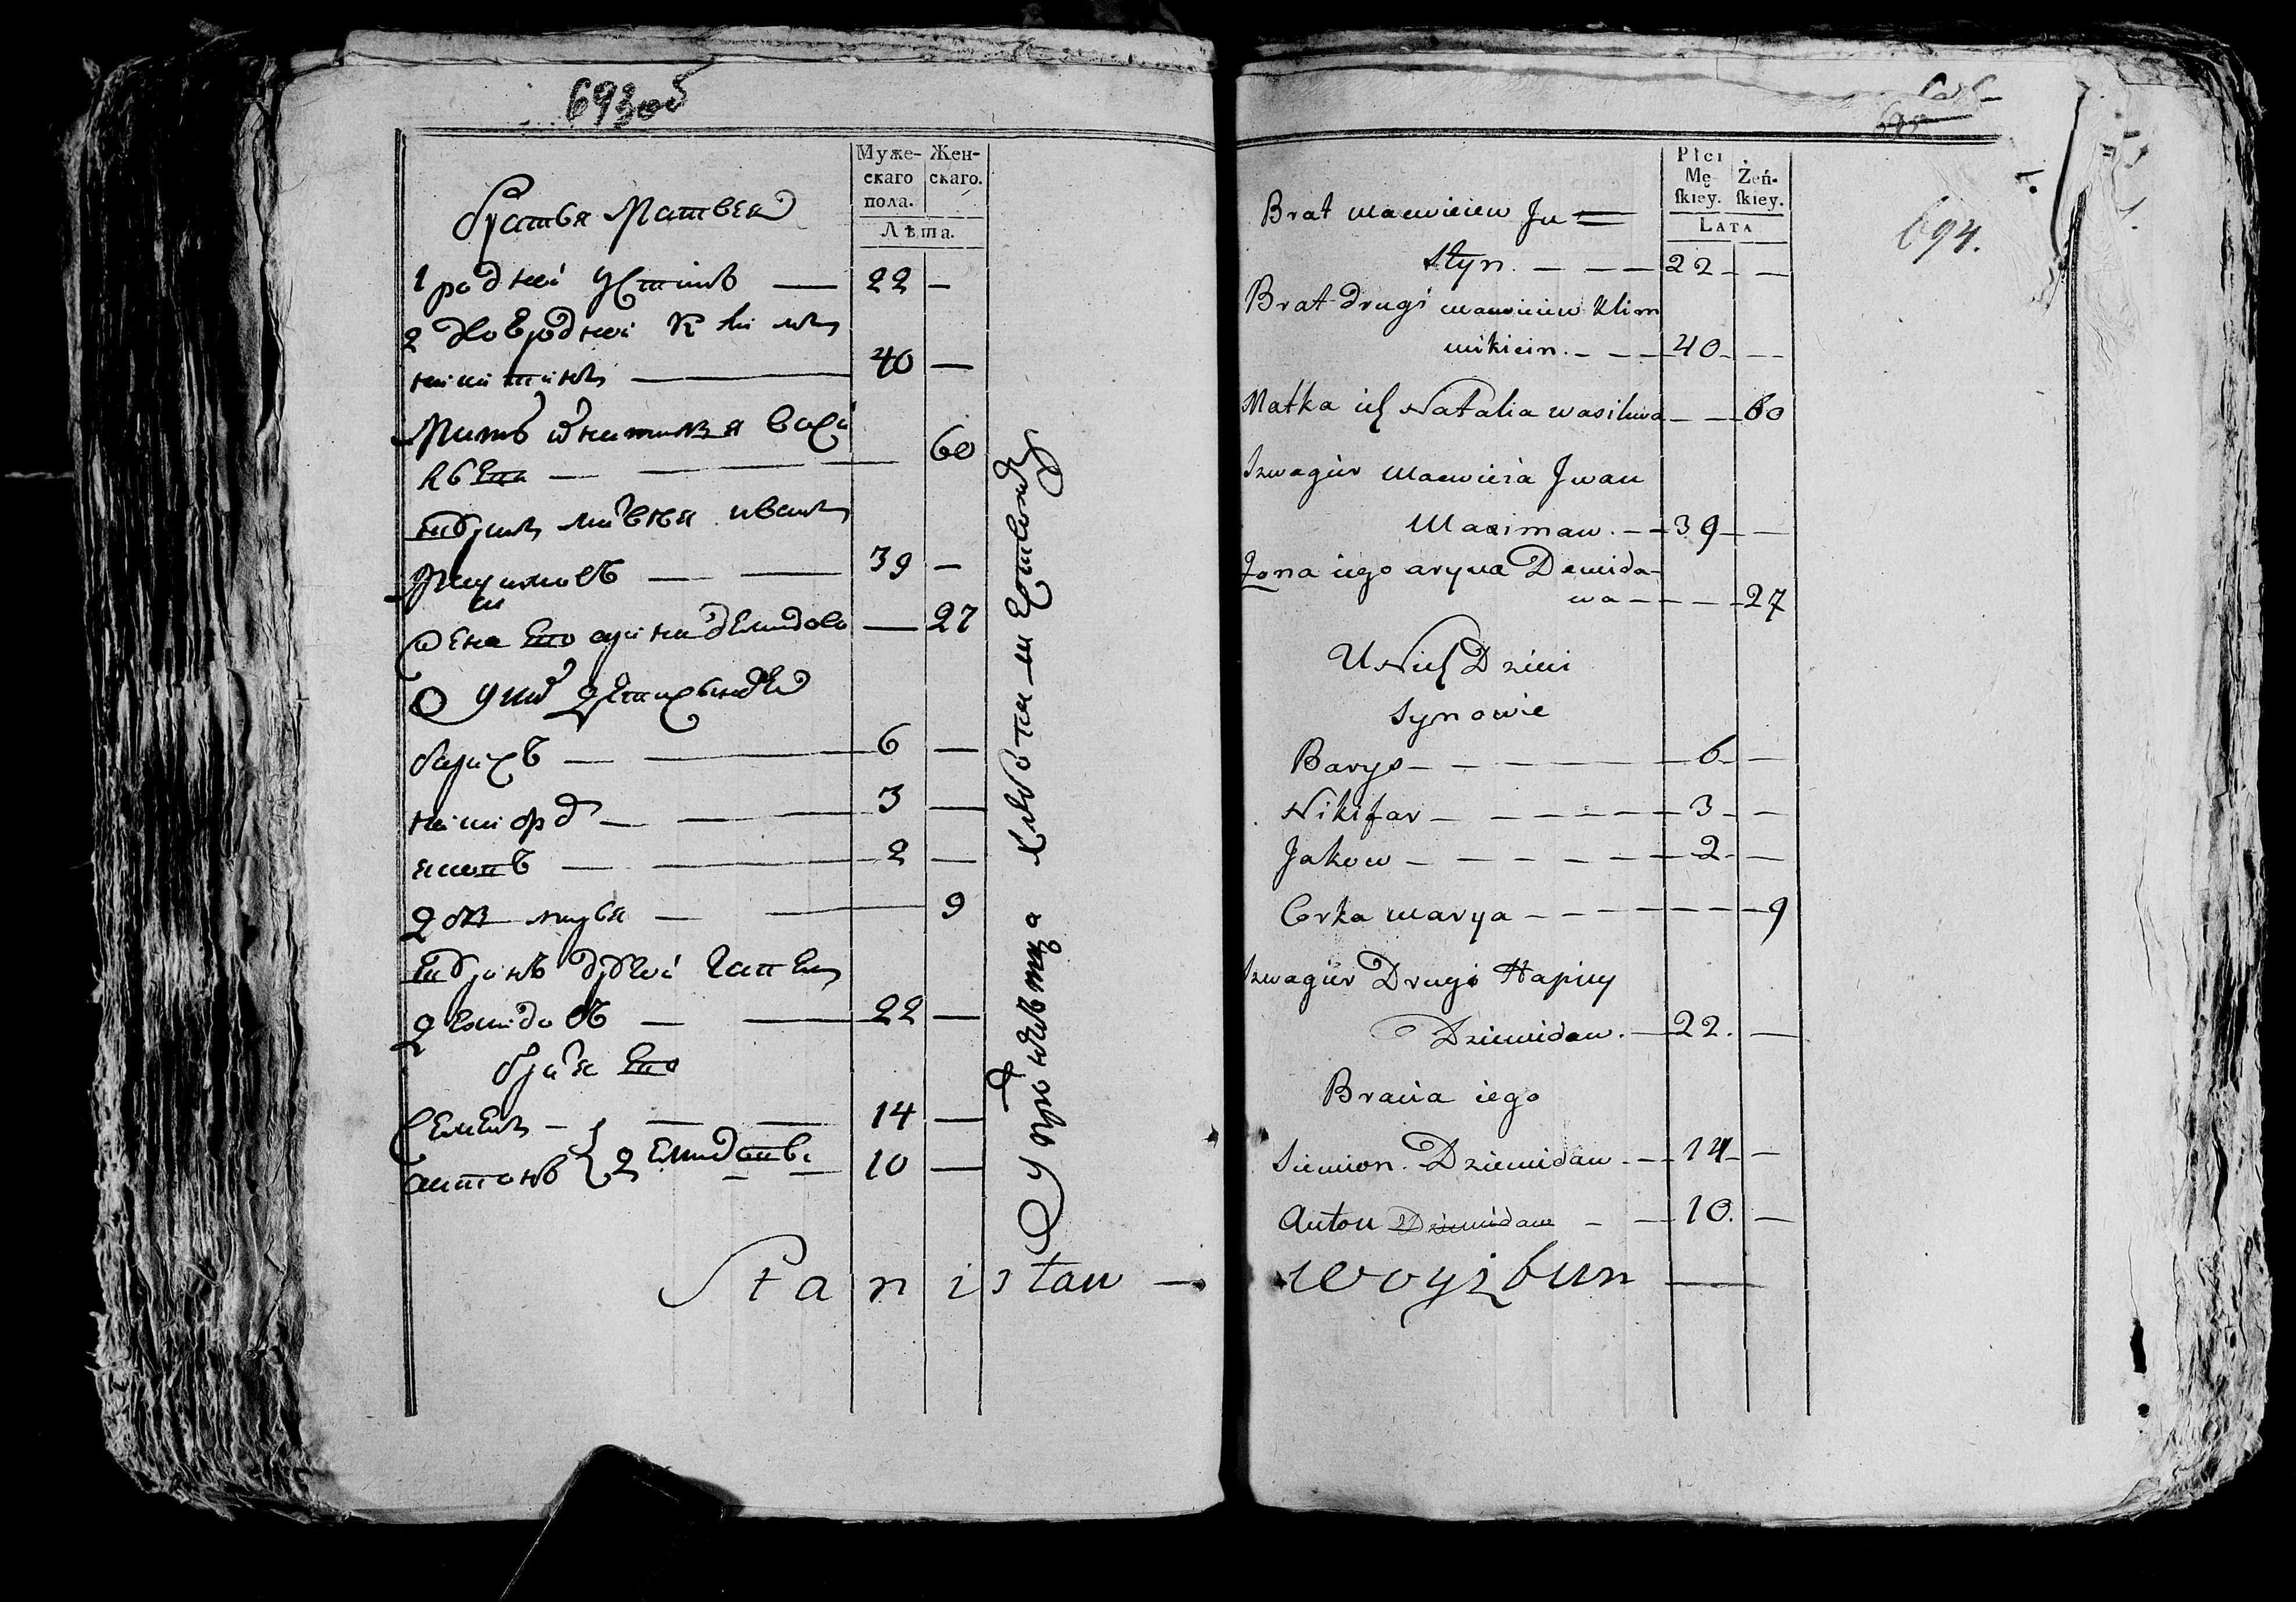 693об
Муже- Жен-
скаго скаго.
пола.
Лѣта.
братья Матвея
1 родной Устинъ — 22 —
2 двоюродной Климъ
никитинъ — 40 —
Мать наталья васи
льева — 60
шуринъ иванъ
Максимовъ — 39 —
жена ево арина демидова — 27
У них дети сыновья
барисъ — 6 —
никифоръ — 3 —
яковъ — 2 —
дочь марья — 9
шуринъ другой Гапей
демидовъ — 22 —
братья ево
Семенъ — 14 —
антонъ } демидовы — 10 —
Stanisław —
694.
Płci
Mę- Żeń-
skiey. skiey.
LATA
Brat macwieiew Ju=
styn. — — — 22 — —
Brat drugi macwieiew Klim
mikicin. — — — 40 — —
Matka ich Natalia wasilewa — — 60
Szwagier Macwieia Jwan
Maximaw. — — 39 — —
Żona iego aryna Demida-
wa — — — 27
U Nich Dzieci
synowie
Barys — — — 6 — —
Nikifar — — — 3 — —
Jakow — — — 2 — —
Corka marya — — — 9
Szwagier Drugi Hapiey
Dziemidaw. — 22. —
Bracia iego
Siemion. Dziemidaw — — 14 — —
Anton Dziemidaw — — 10. —
woyzbun —